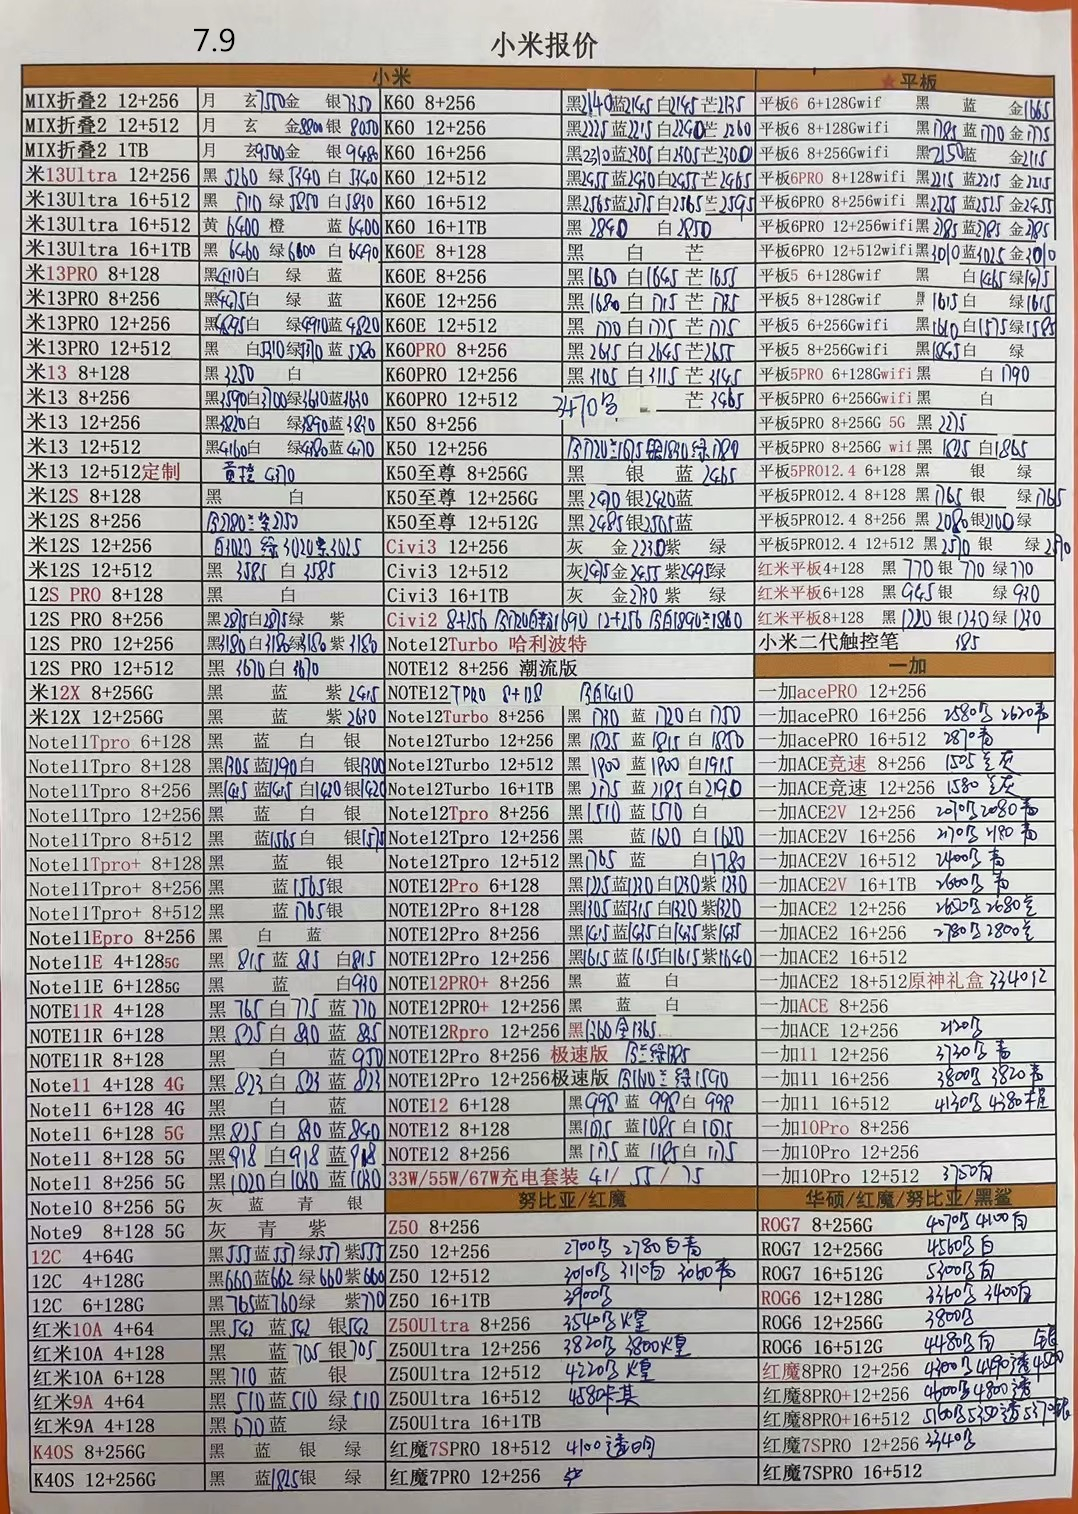 7.9
小米报价
小米
MIX折叠2 12+256 月 玄7550金 银7350
MIX折叠2 12+512 月 玄 金8800银 8050
MIX折叠2 1TB 月 玄9500金 银9480
米13Ultra 12+256 黑 5260 绿 5340 白 5340
米13Ultra 16+512 黑 5710 绿 5850 白 5830
米13Ultra 16+512 黄 6400 橙 蓝 6400
米13Ultra 16+1TB 黑 6460 绿 6600 白 6490
米13PRO 8+128 黑4110白 绿 蓝
米13PRO 8+256 黑4475白 绿 蓝
米13PRO 12+256 黑4895白 绿4910蓝 4820
米13PRO 12+512 黑 白5310绿 蓝 5280
米13 8+128 黑3250 白
米13 8+256 黑3590白3700绿3610蓝3630
米13 12+256 黑3820白 绿3890蓝3830
米13 12+512 黑4160白 绿4180蓝4170
米13 12+512定制 4370
米12S 8+128 黑 白
米12S 8+256
米12S 12+256 白3020 绿3020紫3025
米12S 12+512 黑 3585 白 3585
12S PRO 8+128 黑 白
12S PRO 8+256 黑2875白2875绿 紫
12S PRO 12+256 黑3180白3180绿3180紫 3180
12S PRO 12+512 黑 3670白 3670
米12X 8+256G 黑 蓝 紫 2415
米12X 12+256G 黑 蓝 紫 2630
Note11Tpro 6+128 黑 蓝 白 银
Note11Tpro 8+128 黑1305蓝1290白 银1300
Note11Tpro 8+256 黑1415蓝1415白1420银1420
Note11Tpro 12+256 黑 蓝 白 银
Note11Tpro 8+512 黑 蓝1565白 银1575
Note11Tpro+ 8+128 黑 蓝 银
Note11Tpro+ 8+256 黑 蓝1565银
Note11Tpro+ 8+512 黑 蓝1765银
Note11Epro 8+256 黑 白 蓝
Note11E 4+1285G 黑 815 蓝 815 白815
Note11E 6+1285G 黑 蓝 白930
NOTE11R 4+128 黑 765 白 775 蓝 770
NOTE11R 6+128 黑 835 白 840 蓝 845
NOTE11R 8+128 黑 白 蓝 950
Note11 4+128 4G 黑 823 白 823 蓝 823
Note11 6+128 4G 黑 白 蓝
Note11 6+128 5G 黑 835 白 840 蓝840
Note11 8+128 5G 黑918 白918 蓝918
Note11 8+256 5G 黑1020白1030 蓝1030
Note10 8+256 5G 灰 蓝 青 银
Note9 8+128 5G 灰 青 紫
12C 4+64G 黑555蓝557绿557紫555
12C 4+128G 黑660蓝662绿660紫660
12C 6+128G 黑765蓝760绿 紫770
红米10A 4+64 黑542 蓝542 银542
红米10A 4+128 黑 蓝 705 银705
红米10A 6+128 黑710 蓝 银
红米9A 4+64 黑 510蓝510 绿 510
红米9A 4+128 黑 670蓝 绿
K40S 8+256G 黑 蓝 银 绿
K40S 12+256G 黑 蓝1825银 绿
K60 8+256 黑2140蓝2145白2145芒2135
K60 12+256 黑2225蓝2215白2240芒2260
K60 16+256 黑2310蓝2305白2305芒2300
K60 12+512 黑2455蓝2430白2455芒2465
K60 16+512 黑2565蓝2575白2565芒2595
K60 16+1TB 黑 2840 白 2850
K60E 8+128 黑 白 芒
K60E 8+256 黑1650 白1645 芒1655
K60E 12+256 黑1680 白1715 芒1735
K60E 12+512 黑1770 白1775 芒1775
K60PRO 8+256 黑2615 白2645 芒2655
K60PRO 12+256 黑3105 白3115 芒3145
K60PRO 12+512 3470 芒 3465
K50 8+256
K50 12+256
K50至尊 8+256G 黑 银 蓝 2465
K50至尊 12+256G 黑2470 银2420蓝
K50至尊 12+512G 黑2485银2505蓝
Civi3 12+256 灰 金2230紫 绿
Civi3 12+512 灰2475金2455紫2495绿
Civi3 16+1TB 灰 金2730 紫 绿
Civi2 8+256
Note12Turbo 哈利波特
NOTE12 8+256 潮流版
NOTE12 TPRO 8+128
Note12Turbo 8+256 黑 1730 蓝 1720 白 1750
Note12Turbo 12+256 黑 1825 蓝 1815 白 1850
Note12Turbo 12+512 黑 1900 蓝 1900 白1915
Note12Turbo 16+1TB 黑 2175 蓝 2185 白2190
Note12Tpro 8+256 黑1510 蓝1510 白
Note12Tpro 12+256 黑 蓝1620 白1620
Note12Tpro 12+512 黑1765 蓝 白1780
NOTE12Pro 6+128 黑1225蓝1230白1230紫1230
NOTE12Pro 8+128 黑1305蓝1315白1320紫1320
NOTE12Pro 8+256 黑1415蓝1435白1435紫1435
NOTE12Pro 12+256 黑1615蓝1615白1615紫1640
NOTE12PRO+ 8+256 黑 蓝 白
NOTE12PRO+ 12+256 黑 蓝 白
NOTE12Rpro 12+256 黑1360 金1365
NOTE12Pro 8+256 极速版
NOTE12Pro 12+256极速版
NOTE12 6+128 黑998 蓝 998白 998
NOTE12 8+128 黑1075 蓝1085 白1075
NOTE12 8+256 黑1175 蓝1185 白1175
33W/55W/67W充电套装 41/ 55 / 75
努比亚/红魔
Z50 8+256
Z50 12+256 2700 2780白青
Z50 12+512 3010 3110白 3060青
Z50 16+1TB 3900
Z50Ultra 8+256 3540 煌
Z50Ultra 12+256 3820 3800煌
Z50Ultra 12+512 4220 煌
Z50Ultra 16+512 4580卡其
Z50Ultra 16+1TB
红魔7SPRO 18+512 4100透明
红魔7PRO 12+256
★平板
平板6 6+128Gwif 黑 蓝 金1665
平板6 8+128Gwifi 黑1785 蓝1770 金1775
平板6 8+256Gwifi 黑2150蓝 金2115
平板6PRO 8+128wifi 黑2215 蓝2215 金2215
平板6PRO 8+256wifi 黑2525 蓝2525 金2455
平板6PRO 12+256wifi 黑2785 蓝2785 金2785
平板6PRO 12+512wifi 黑3010 蓝3025 金3010
平板5 6+128Gwif 黑 白1465绿1475
平板5 8+128Gwif 黑1615 白 绿1615
平板5 6+256Gwifi 黑1610 白1575绿1585
平板5 8+256Gwifi 黑1845白 绿
平板5PRO 6+128Gwifi 黑 白1790
平板5PRO 6+256Gwifi 黑 白
平板5PRO 8+256G 5G 黑 2275
平板5PRO 8+256G wif 黑 1825 白1865
平板5PRO12.4 6+128 黑 银 绿
平板5PRO12.4 8+128 黑1765 银 绿1765
平板5PRO12.4 8+256 黑2080银2100绿
平板5PRO12.4 12+512 黑2570 银 绿2570
红米平板4+128 黑 770 银 770 绿770
红米平板6+128 黑 945 银 绿 930
红米平板8+128 黑 1220 银1230 绿1230
小米二代触控笔 185
一加
一加acePRO 12+256
一加acePRO 16+256 2580 2620青
一加acePRO 16+512 2870青
一加ACE竞速 8+256 1505
一加ACE竞速 12+256 1580
一加ACE2V 12+256 2070 2080青
一加ACE2V 16+256 2170 2180青
一加ACE2V 16+512 2400 青
一加ACE2V 16+1TB 2600 青
一加ACE2 12+256 2650 2680
一加ACE2 16+256 2780 2800
一加ACE2 16+512
一加ACE2 18+512原神礼盒 3340红
一加ACE 8+256
一加ACE 12+256 2120
一加11 12+256 3730 青
一加11 16+256 3800 3820青
一加11 16+512 4130 4380
一加10Pro 8+256
一加10Pro 12+256
一加10Pro 12+512 3750白
华硕/红魔/努比亚/黑鲨
ROG7 8+256G 4070 4100白
ROG7 12+256G 4560 白
ROG7 16+512G 5300 白
ROG6 12+128G 3360 3400白
ROG6 12+256G 3800
ROG6 16+512G 4480 白
红魔8PRO 12+256 4300 4490透
红魔8PRO+12+256 4600 4800透
红魔8PRO+16+512 5160 5350透5370银
红魔7SPRO 12+256 3340
红魔7SPRO 16+512